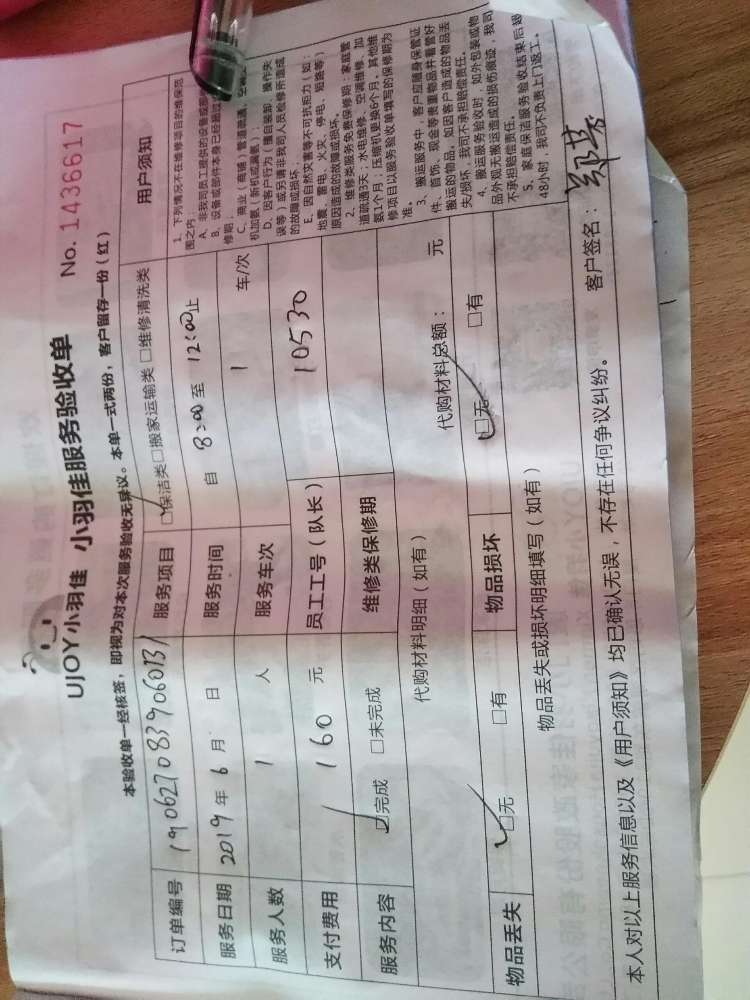 UJOY小羽佳 小羽佳服务验收单 No. 1436617
本验收单一经核签，即视为对本次服务验收无异议。本单一式两份，客户留存一份（红）
订单编号 1906270839060131 服务项目 ☑保洁类 □搬家运输类 □维修清洗类
服务日期 2019年6月 日 服务时间 自 8:00 至 12:00 止
服务人数 1 人 服务车次 1 车/次
支付费用 160 元 员工工号（队长） 10530
服务内容 ☑完成 □未完成 维修类保修期
代购材料明细（如有） 代购材料总额： 元
物品丢失 ☑无 □有 物品损坏 ☑无 □有
物品丢失或损坏明细填写（如有）
用户须知
1、下列情况不在维修项目的维保范
围之内：
A、非我司员工提供的设备或部
B、设备或部件本身已经超过
修期；
C、商业（商铺）管道疏通、空
机加氨（新机或漏氨）；
D、因客户行为（擅自装卸、操作失
误等）或另请非我司人员检修所造成
的故障或损坏；
E、因自然灾害等不可抗拒力（如：
地震、雷电、火灾、停电、短路等）
原因造成的故障或损坏。
2、维修类服务免费保修期：家庭管
道疏通3天，水电维修、空调维修、加
氨1个月，压缩机更换6个月，其他维
修项目以服务验收单填写的保修期为
准。
3、搬运服务中，客户应随身保管证
件、首饰、现金等贵重物品并看管好
搬运的物品，如因客户造成的物品丢
失/损坏，我司不承担赔偿责任。
4、搬运服务验收时，如外包装或物
品外观无搬运造成的损伤痕迹，我司
不承担赔偿责任。
5、家庭保洁服务验收结束后超
48小时，我司不负责上门返工。
本人对以上服务信息以及《用户须知》均已确认无误，不存在任何争议纠纷。 客户签名：